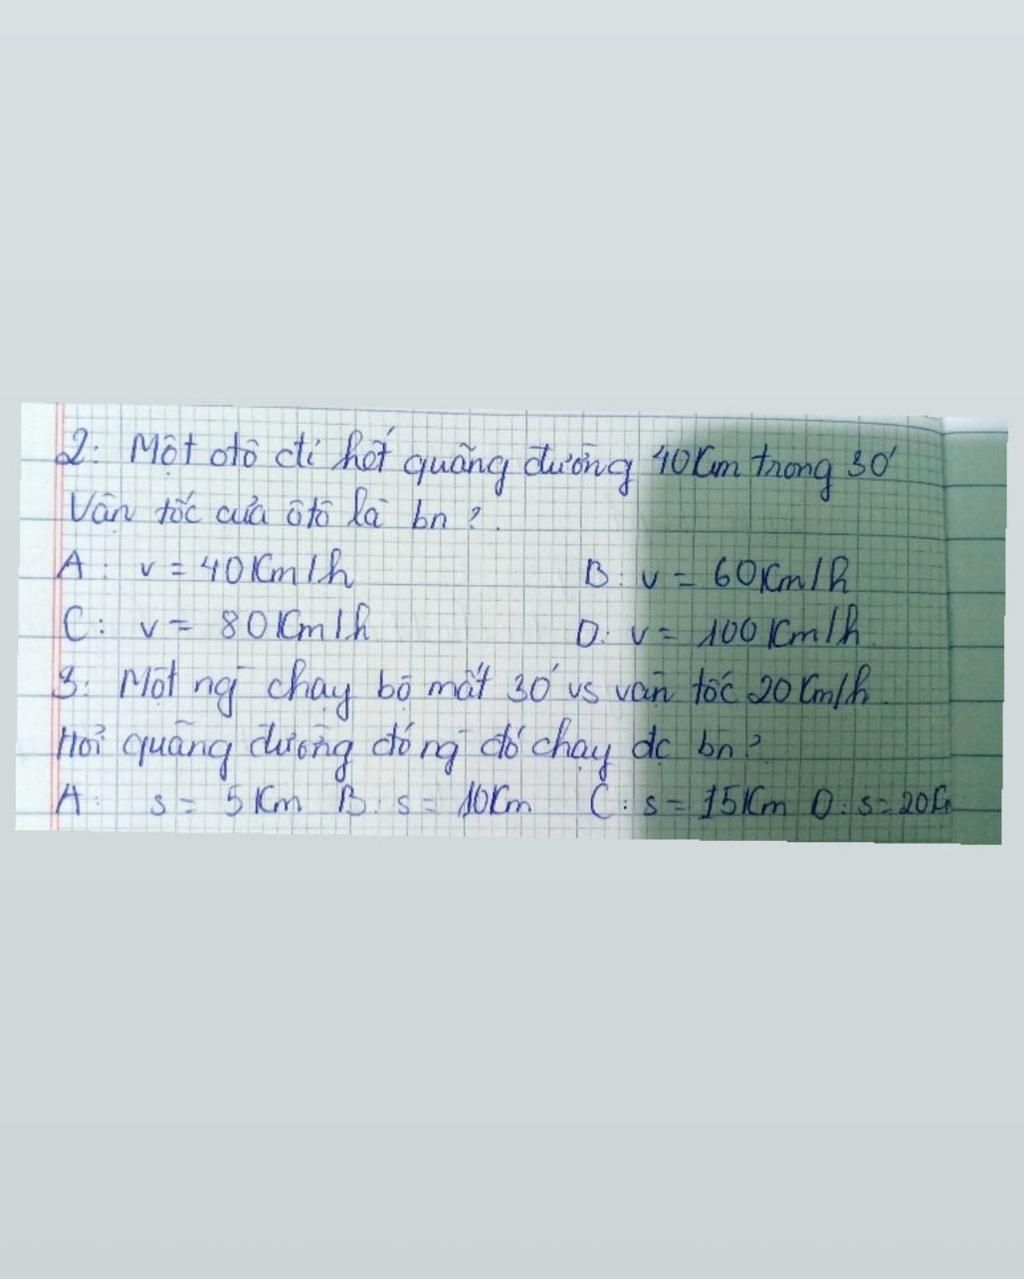 2: Một otô đi hết quãng đường 40Km trong 30'
Vận tốc của ôtô là bn?.
A: v = 40Km/h B: v = 60Km/h
C: v = 80Km/h D: v = 100Km/h
3: Một ng chạy bộ mất 30' vs vận tốc 20Km/h.
Hỏi quãng đường đó ng đó chạy dc bn?
A: s = 5Km B: s = 10Km C: s = 15Km D: s = 20K